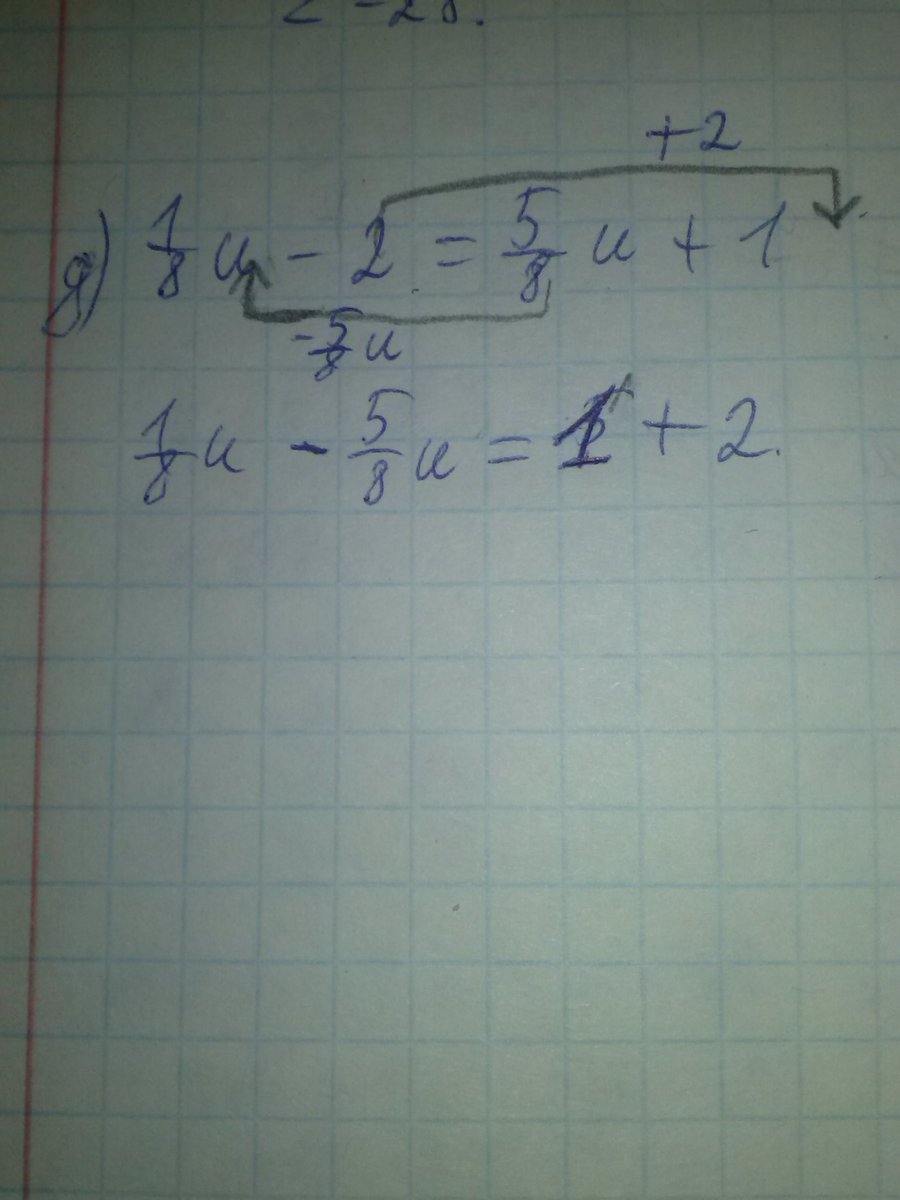 = -28.
+2
д) 1/8 u - 2 = 5/8 u + 1
-5/8 u
1/8 u - 5/8 u = 1 + 2.